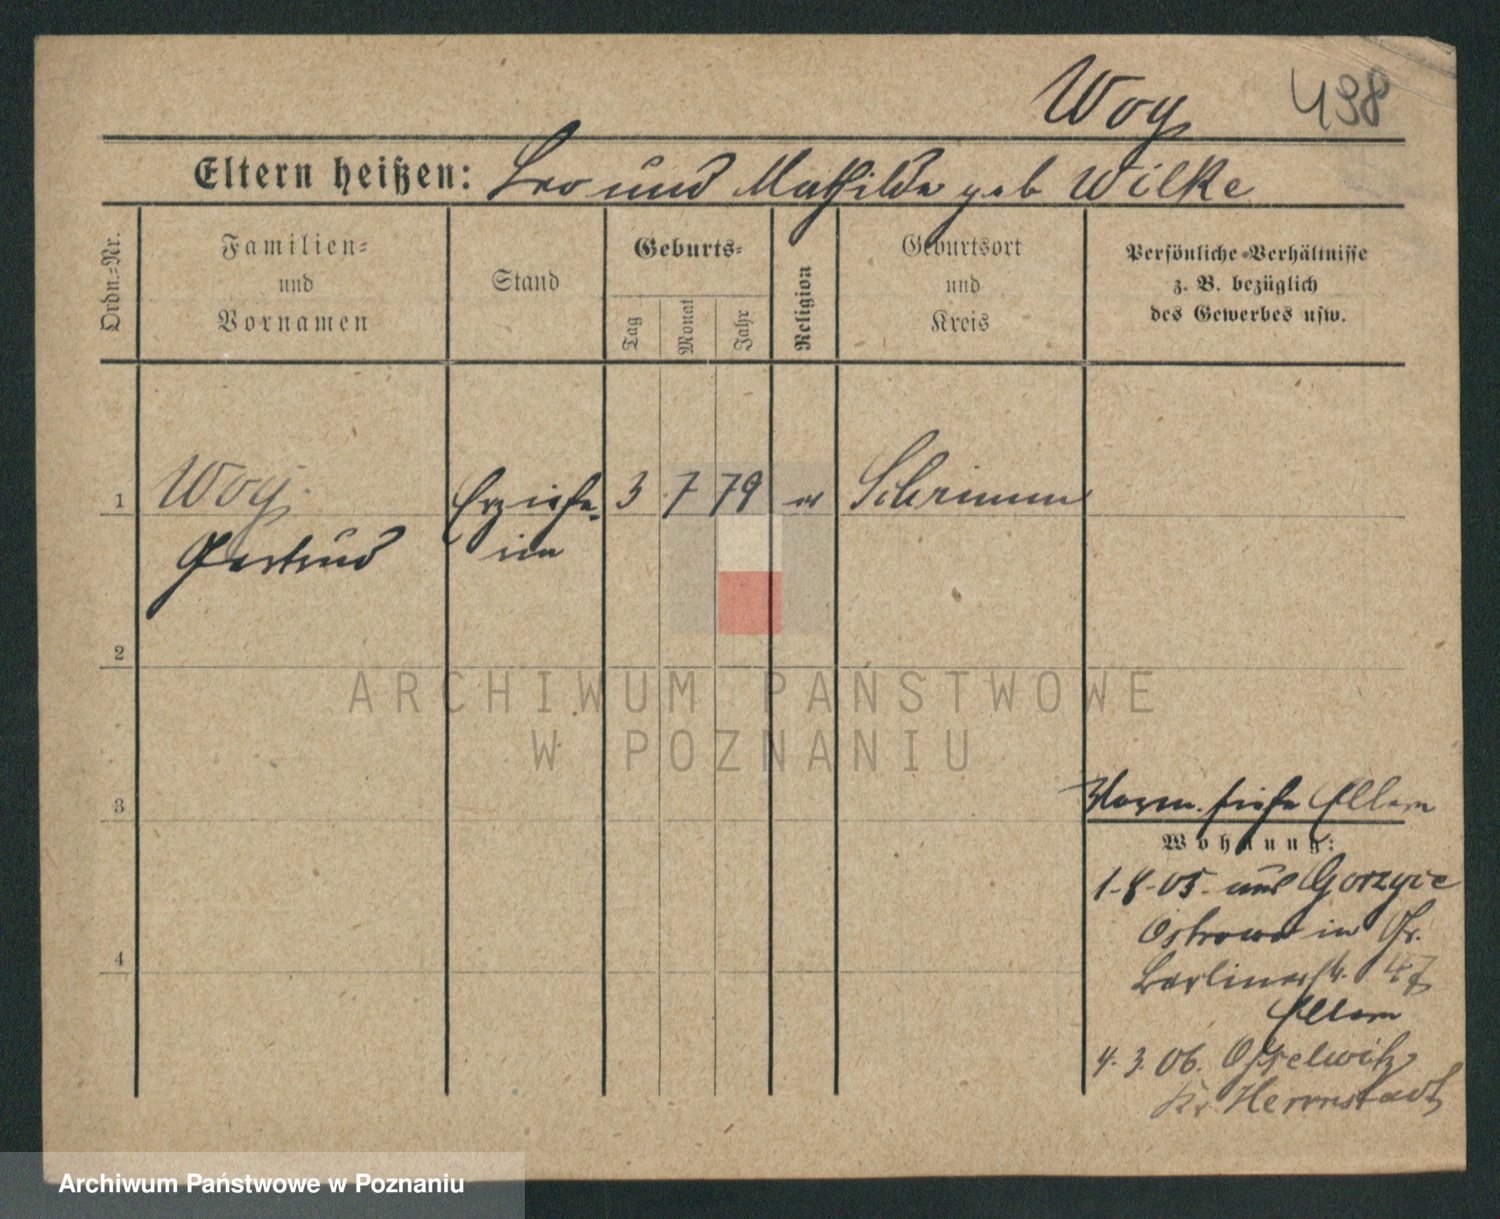 Woy 498
Eltern heißen: Leo und Mathilde geb Wilke
Ordn.=Nr.
Familien=
und
Vornamen
Stand
Geburts=
Tag
Monat
Jahr
Religion
Geburtsort
und
Kreis
Persönliche Verhältnisse
z. B. bezüglich
des Gewerbes usw.
1 Woy Erziehe- 3 7 79 Schrimm
Gertrud rin
2
ARCHIWUM PAŃSTWOWE
W POZNANIU
3
siehe Eltern
Wohnung:
1-8-05 aus
Ostrowo in Gr.
Berlinerstr. 47
Eltern
4
4. 3. 06.
Kr. Herrnstadt
Archiwum Państwowe w Poznaniu